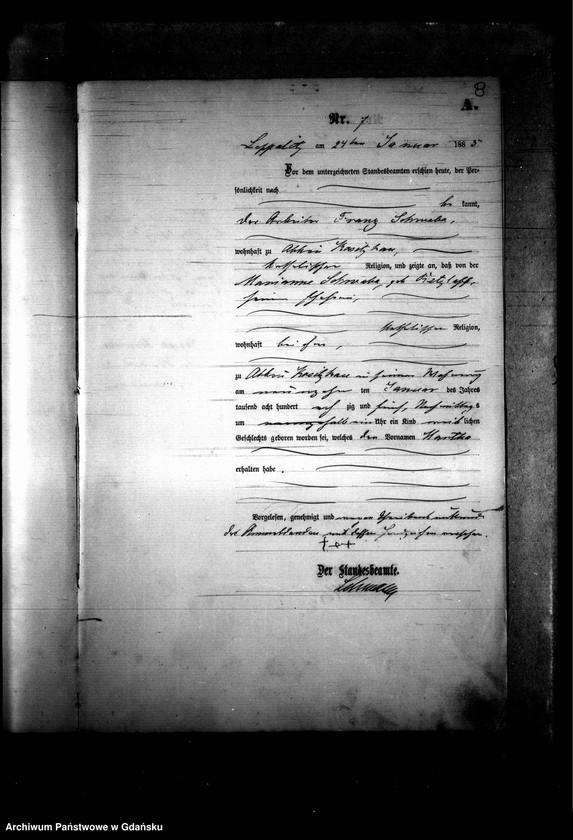 8
A.
Nr. 7
am 24ten Januar 1885
Vor dem unterzeichneten Standesbeamten erschien heute, der Per-
sönlichkeit nach
be kannt,
der Arbeiter Franz Schwaba,
wohnhaft zu
katholischer Religion, und zeigte an, daß von der
Marianne Schwaba, geb.
seiner Ehefrau,
katholischer Religion,
wohnhaft bei ihm,
zu in seiner Wohnung
am neunzehn ten Januar des Jahres
tausend acht hundert acht zig und fünf, Nachmittags
um Uhr ein Kind weib lichen
Geschlechts geboren worden sei, welches den Vornamen Martha
erhalten habe .
Vorgelesen, genehmigt und wegen
des mit dessen Handzeichen versehen.
+++
Der Standesbeamte.
Archiwum Państwowe w Gdańsku